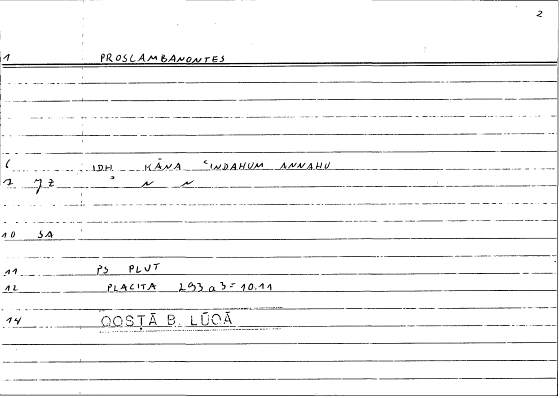 2
1 PROSLAMBANONTES
6 IDH KĀNA ʿINDAHUM ANNAHU
7 JZ " ~ ~
10 SA
11 PS PLUT
12 PLACITA 293 a 3 = 10.11
14 QOSṬĀ B. LŪQĀ